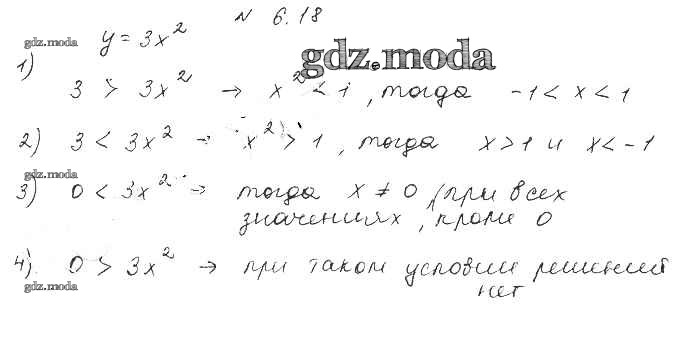 N 6.18
gdz.moda y = 3x²
gdz.moda
1) 3 > 3x² → x² < 1, тогда -1 < x < 1
2) 3 < 3x² → x² > 1, тогда x > 1 и x < -1
gdz.moda
3) 0 < 3x² → тогда x ≠ 0 (при всех
значениях, кроме 0
4) 0 > 3x² → при таком условии решений
нет
gdz.moda